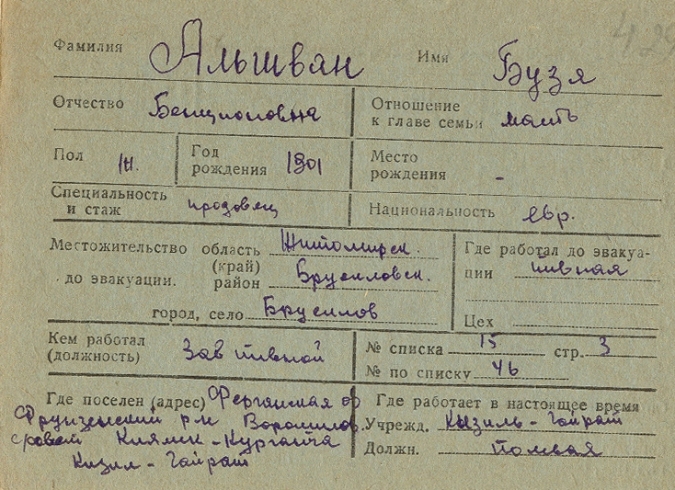 429
Фамилия Альшван Имя Бузя
Отчество Бенционовна Отношение к главе семьи мать
Пол ж. Год рождения 1901 Место рождения -
Специальность и стаж продавец Национальность евр.
Местожительство до эвакуации. область (край) Житомирск.
район Брусиловск.
город, село Брусилов
Где работал до эвакуации пивная
Цех
Кем работал (должность) Зав пивной
№ списка 15 стр. 3
№ по списку 46
Где поселен (адрес) Ферганская об
Фрунзенский р-н Ворошилов
Кизил-Гайрат
Где работает в настоящее время
Учрежд. Кызиль-Гайрат
Должн.